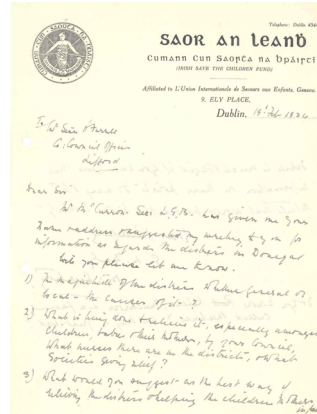 Telephone: Dublin 4346
SAOR AN LEANḂ
CUMANN CUN SAORTA NA BPÁISTÍ
(IRISH SAVE THE CHILDREN FUND)
Affiliated to L'Union Internationale de Secours aux Enfants, Geneva
9, ELY PLACE,
Dublin, 19th Feb 1924
To Mr Sean O'Farrell
C. Council Offices
Lifford
Dear Sir
Mr McCarron. Sec: L.G.B. has given me your
name & address & suggested my writing to you for
information as regards the distress in Donegal
Will you please let me know.
1) The magnitude of the distress whether general or
local - the causes of it?
2) What is being done to relieve it, especially amongst
children, babies & their mothers, by your Council,
What nurses there are in the districts, & what
Societies giving relief?
3) What would you suggest as the best way of
relieving the distress & helping the children & mothers,